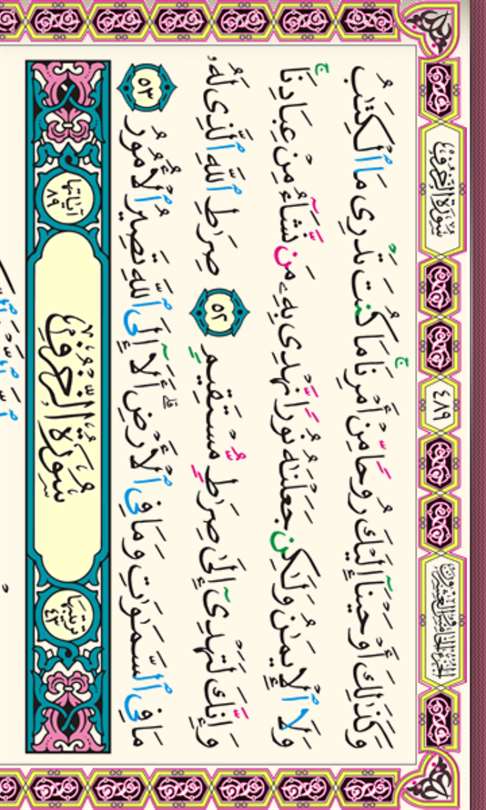 الجزء الخامس والعشرون ٤٨٩ سورة الزخرف
وَكَذَٰلِكَ أَوْحَيْنَآ إِلَيْكَ رُوحًا مِّنْ أَمْرِنَا ۚ مَا كُنتَ تَدْرِى مَا ٱلْكِتَٰبُ
وَلَا ٱلْإِيمَٰنُ وَلَٰكِن جَعَلْنَٰهُ نُورًا نَّهْدِى بِهِۦ مَن نَّشَآءُ مِنْ عِبَادِنَا ۚ
وَإِنَّكَ لَتَهْدِىٓ إِلَىٰ صِرَٰطٍ مُّسْتَقِيمٍ ٥٢ صِرَٰطِ ٱللَّهِ ٱلَّذِى لَهُۥ
مَا فِى ٱلسَّمَٰوَٰتِ وَمَا فِى ٱلْأَرْضِ ۗ أَلَآ إِلَى ٱللَّهِ تَصِيرُ ٱلْأُمُورُ ٥٣
ترتيبها ٤٣ سُورَةُ الزُّخْرُفِ آياتها ٨٩